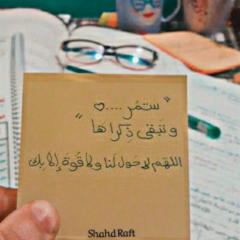 " ستمُر .... ♡
وتبقى ذِكراها "
اللهم لا حَول لَنا ولا قُوة إلا بِك
Shahd Raft